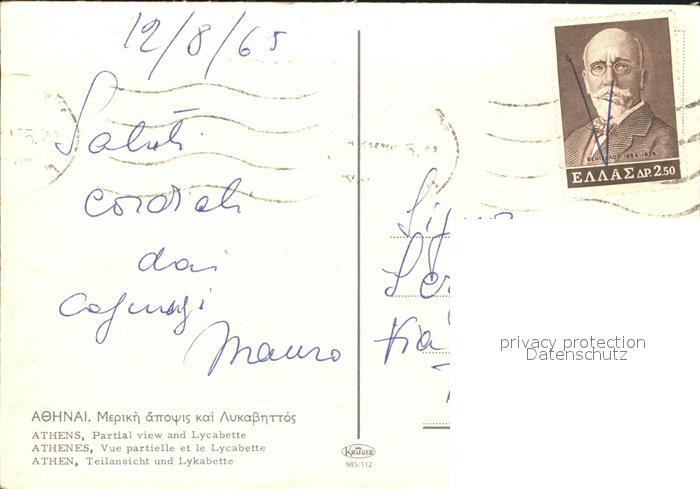 12/8/65
Saluti
cordiali
dai
cognugi
Mauro
ΑΘΗΝΑΙ. Μερικὴ ἄποψις καὶ Λυκαβηττός
ATHENS, Partial view and Lycabette
ATHENES, Vue partielle et le Lycabette
ATHEN, Teilansicht und Lykabette
KRÜGER
985/112
ΒΕΝΙΖΕΛΟΣ 1864-1936
ΕΛΛΑΣ ΔΡ. 2.50
Via
privacy protection
Datenschutz